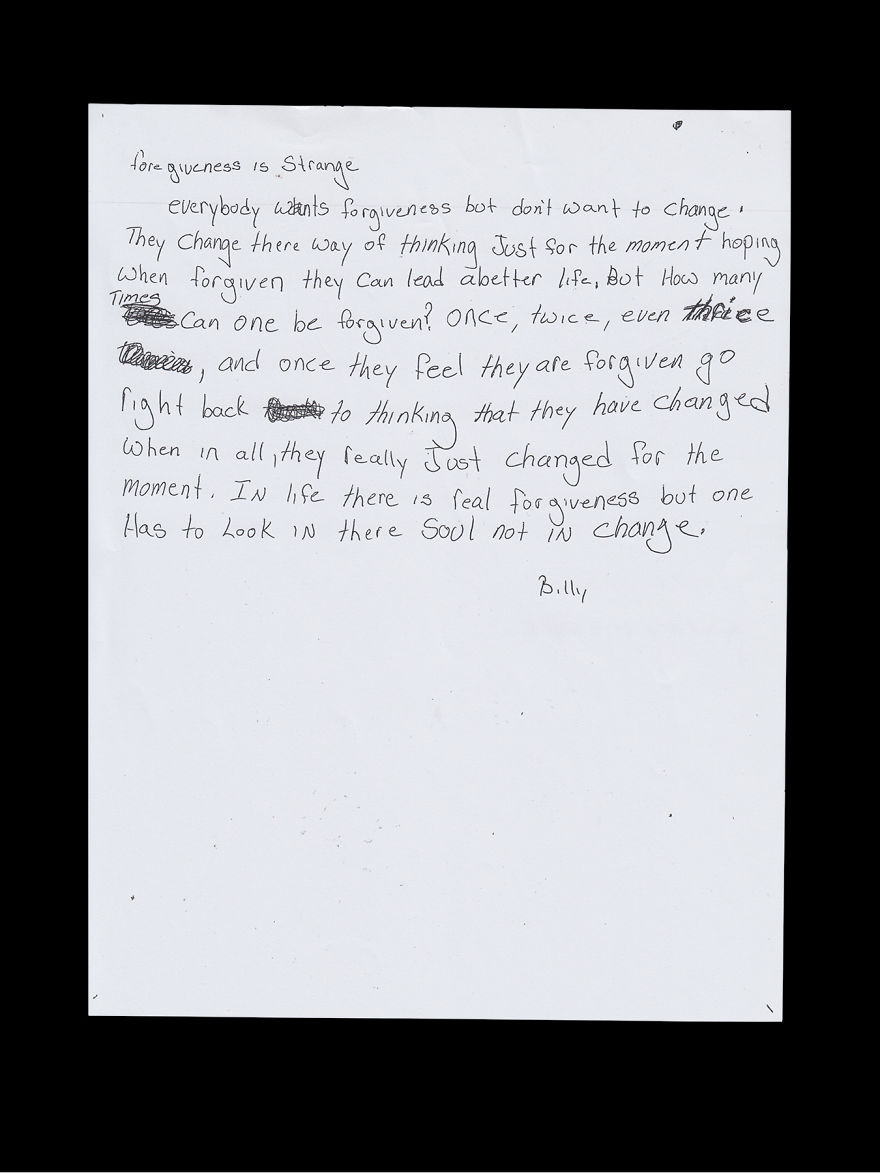 foregiveness is Strange
everybody wants forgiveness but don't want to change.
They Change there way of thinking Just for the moment hoping
when forgiven they Can lead abetter life, But How many
Times
Can one be forgiven? ONce, twice, even thrice
, and once they feel they are forgiven go
right back to thinking that they have changed
when in all, they really Just changed for the
moment. IN life there is real forgiveness but one
Has to Look iN there Soul not iN change.
Billy